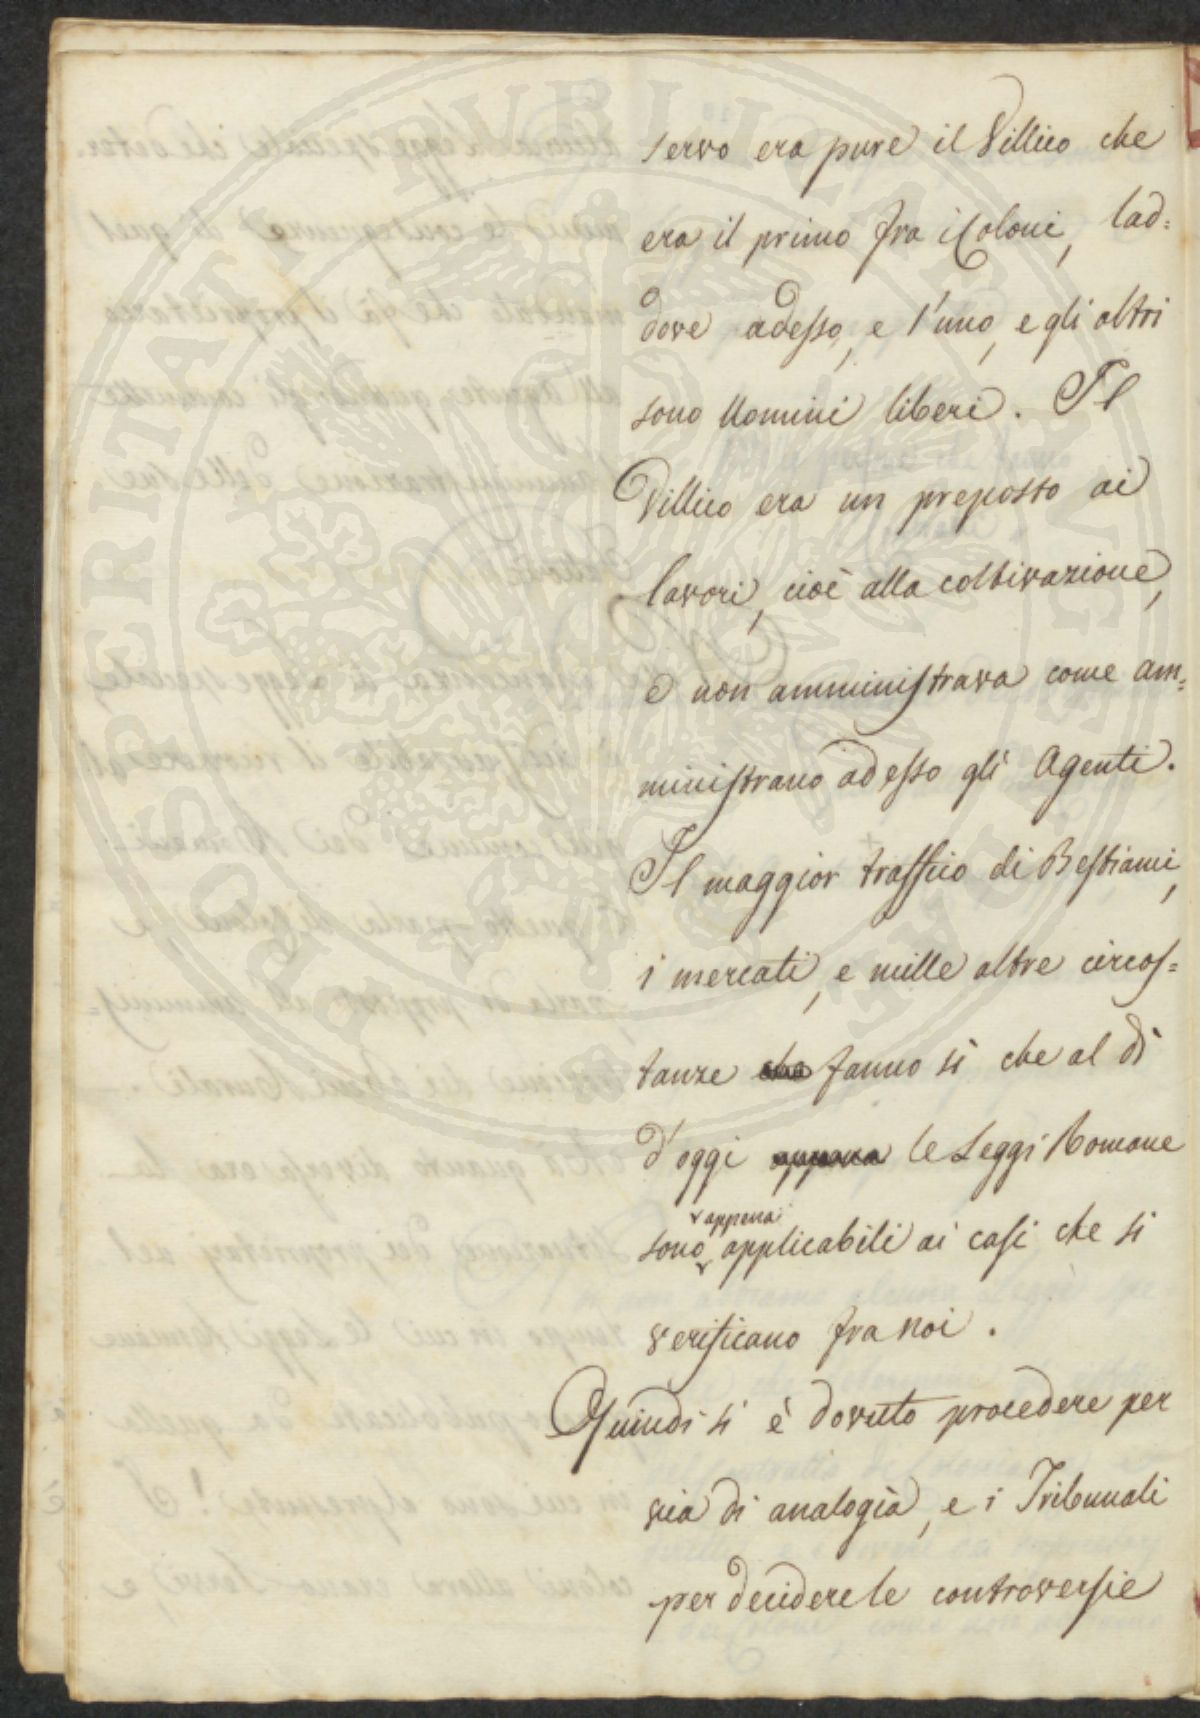 servo era pure il Villico che
era il primo fra i Coloni, lad=
dove adesso, e l'uno, e gli altri
sono Uomini liberi. Il
Villico era un preposto ai
lavori, cioè alla coltivazione,
e non amministrava come am=
ministrano adesso gli Agenti.
Il maggior traffico di Bestiami,
i mercati, e mille altre circos=
tanze che fanno sì che al dì
d'oggi appena le Leggi Romane
appena
sono applicabili ai casi che si
verificano fra noi.
Quindi si è dovuto procedere per
via di analogia, e i Tribunali
per decidere le controversie
PROSPERITATI PUBLICAE AUGENDAE